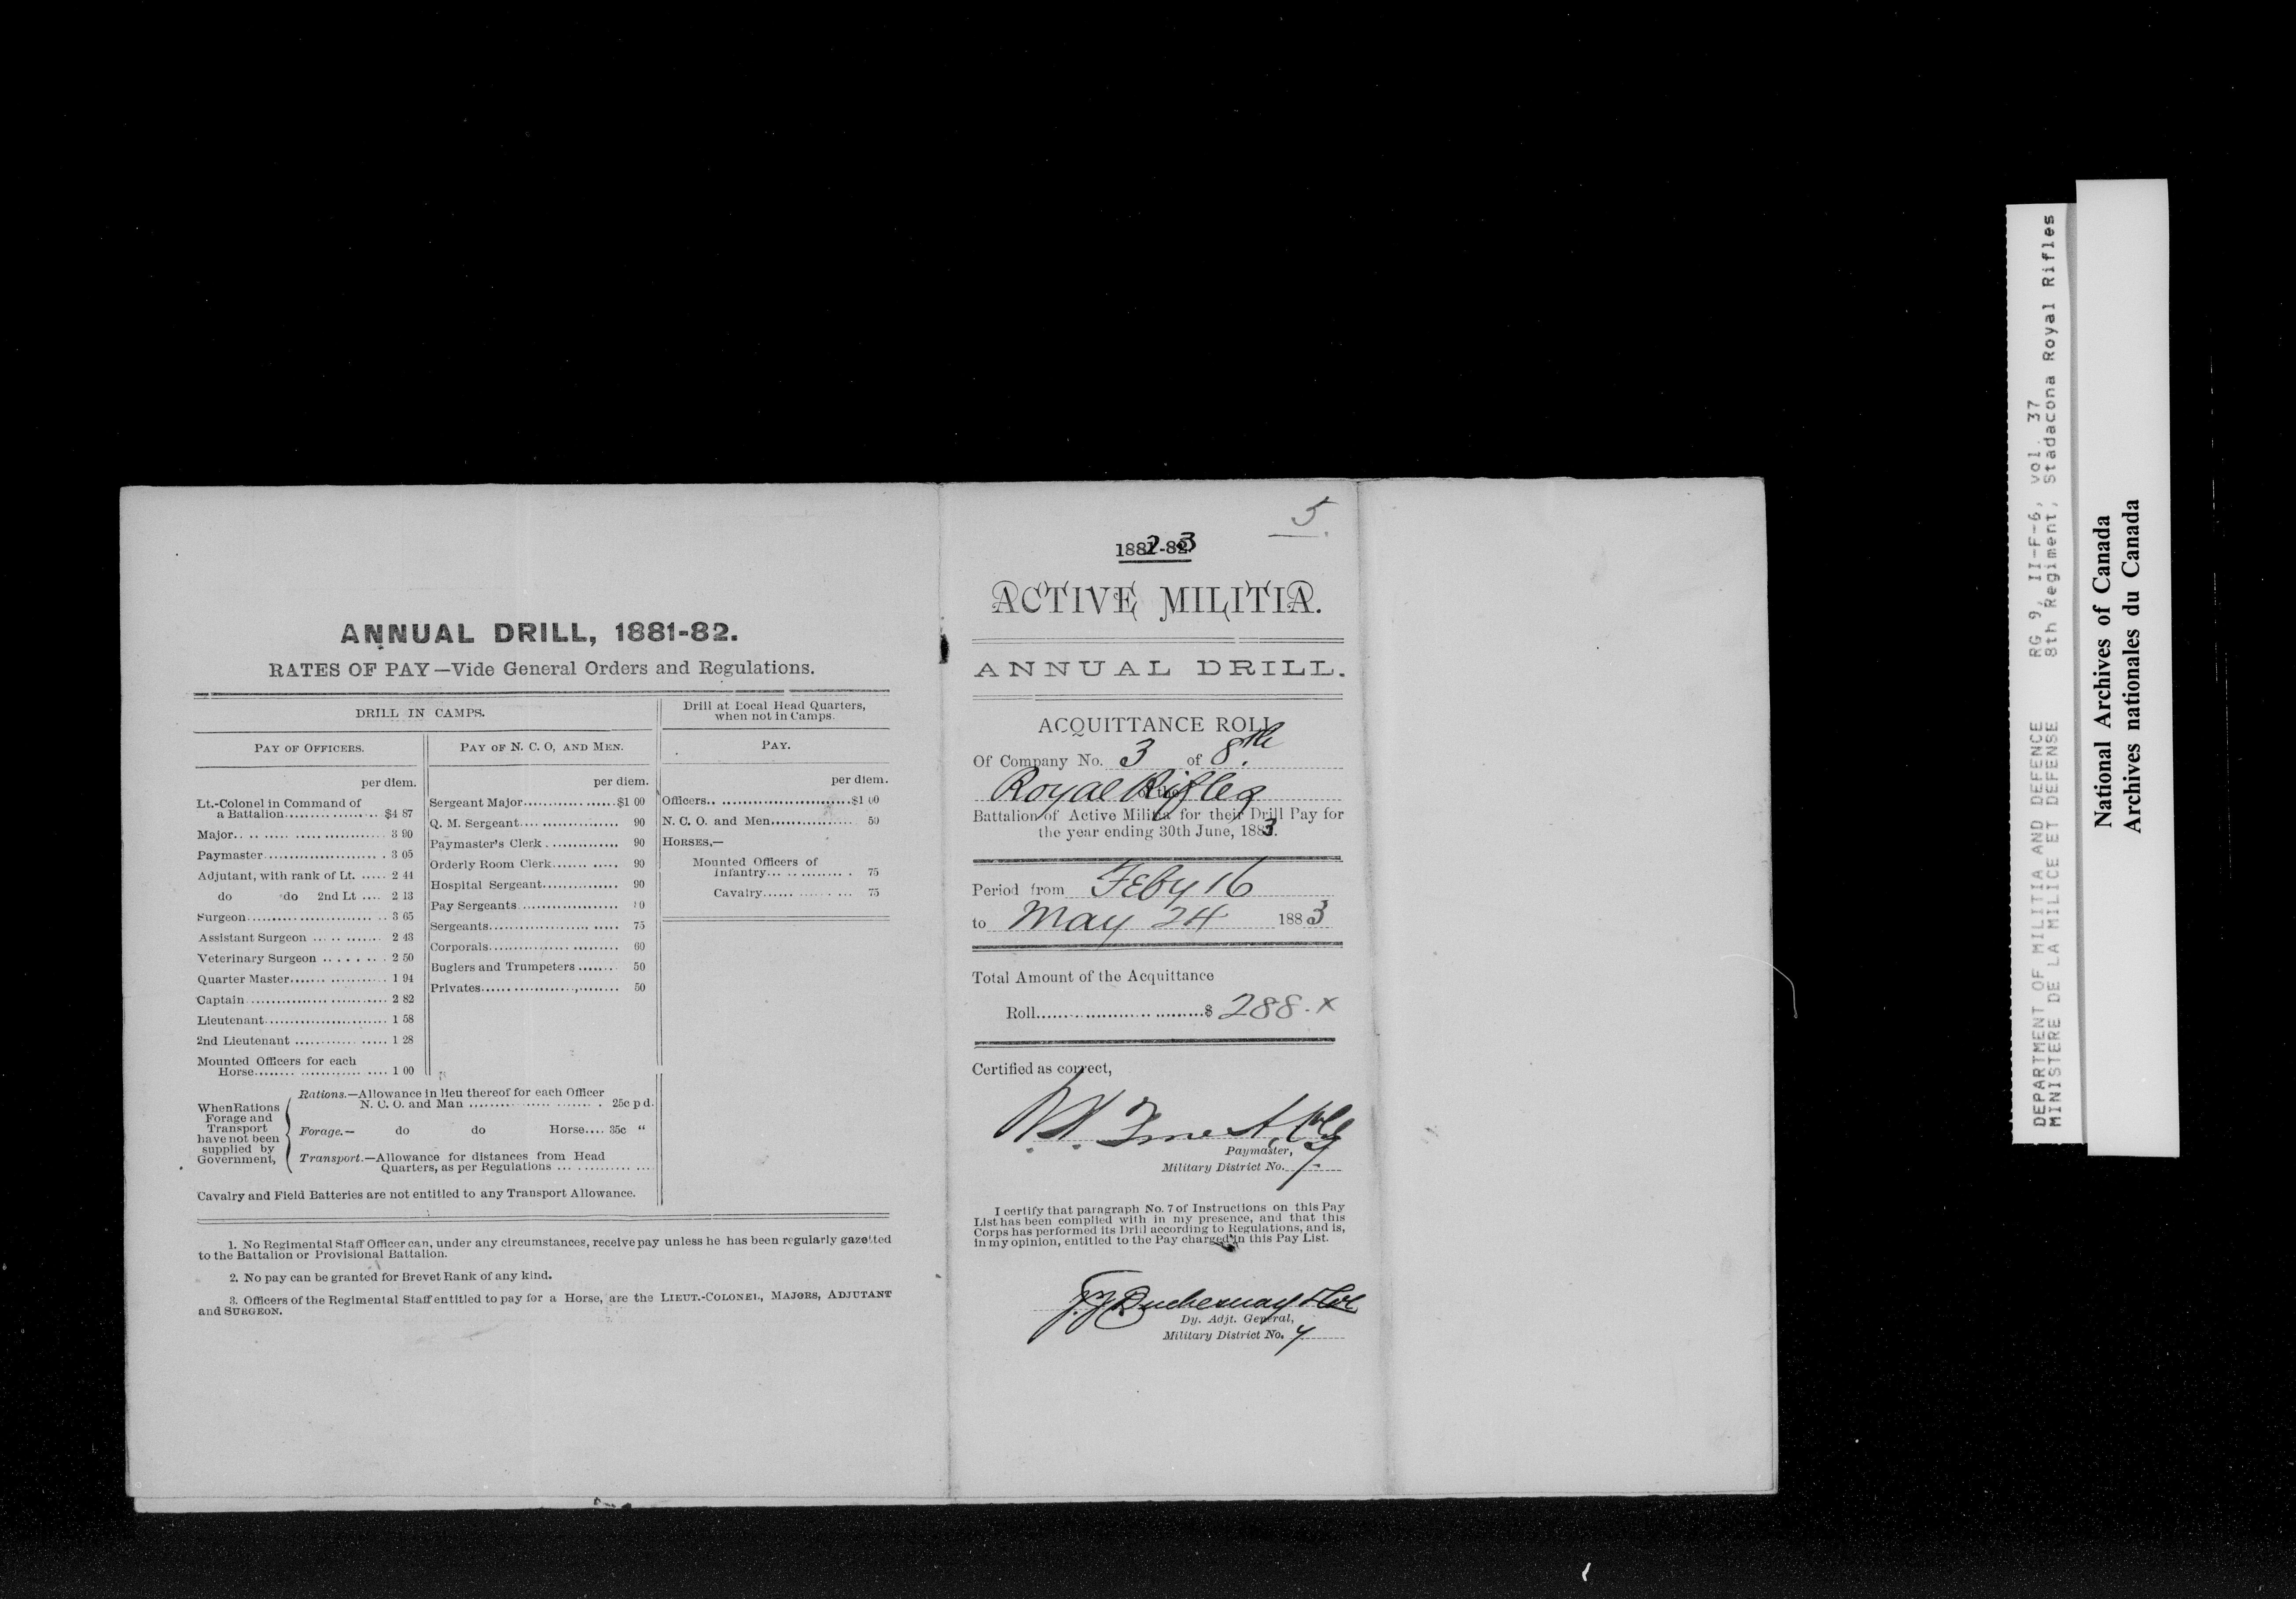 ANNUAL DRILL, 1881-82.
RATES OF PAY—Vide General Orders and Regulations.
DRILL IN CAMPS.
PAY OF OFFICERS.
per diem.
Lt.-Colonel in Command of
a Battalion................. $4 87
Major.................. 3 90
Paymaster.................. 3 05
Adjutant, with rank of Lt. ..... 2 44
do do 2nd Lt .... 2 13
Surgeon.................. 3 65
Assistant Surgeon ............ 2 43
Veterinary Surgeon ........ 2 50
Quarter Master.................. 1 94
Captain.................. 2 82
Lieutenant.................. 1 58
2nd Lieutenant .................. 1 28
Mounted Officers for each
Horse.................. 1 00
PAY OF N. C. O, AND MEN.
per diem.
Sergeant Major..................$1 00
Q. M. Sergeant.................. 90
Paymaster's Clerk .............. 90
Orderly Room Clerk............ 90
Hospital Sergeant.............. 90
Pay Sergeants .................. 0
Sergeants.................. 75
Corporals.................. 60
Buglers and Trumpeters ........ 50
Privates.................. 50
Drill at Local Head Quarters,
when not in Camps.
PAY.
per diem.
Officers..................$1 00
N. C. O. and Men................ 50
HORSES,—
Mounted Officers of
Infantry.................. 75
Cavalry.................. 75
When Rations
Forage and
Transport
have not been
supplied by
Government,
Rations.—Allowance in lieu thereof for each Officer
N. C. O. and Man .................. 25c p d.
Forage.— do do Horse.... 35c "
Transport.—Allowance for distances from Head
Quarters, as per Regulations ..................
Cavalry and Field Batteries are not entitled to any Transport Allowance.
1. No Regimental Staff Officer can, under any circumstances, receive pay unless he has been regularly gazetted
to the Battalion or Provisional Battalion.
2. No pay can be granted for Brevet Rank of any kind.
3. Officers of the Regimental Staff entitled to pay for a Horse, are the LIEUT.-COLONEL, MAJORS, ADJUTANT
and SURGEON.
5
1882-83
ACTIVE MILITIA.
ANNUAL DRILL.
ACQUITTANCE ROLL
Of Company No. 3 of 8th
Royal Rifles
Battalion of Active Militia for their Drill Pay for
the year ending 30th June, 1883.
Period from Feby 16
to May 24 1883
Total Amount of the Acquittance
Roll..................$ 288.x
Certified as correct,
Paymaster,
Military District No. 7
I certify that paragraph No. 7 of Instructions on this Pay
List has been complied with in my presence, and that this
Corps has performed its Drill according to Regulations, and is,
in my opinion, entitled to the Pay charged in this Pay List.
Duchesnay
Dy. Adjt. General,
Military District No. 7
DEPARTMENT OF MILITIA AND DEFENCE RG 9, II-F-6, vol. 37
MINISTERE DE LA MILICE ET DEFENSE 8th Regiment, Stadacona Royal Rifles
National Archives of Canada
Archives nationales du Canada